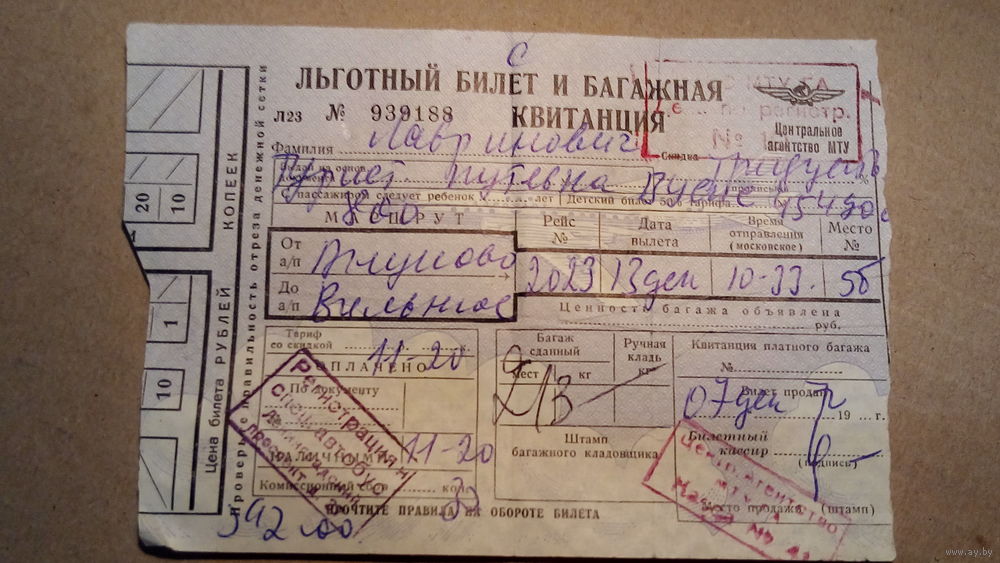 С
ЛЬГОТНЫЙ БИЛЕТ И БАГАЖНАЯ
Л23 № 939188 КВИТАНЦИЯ
МТУ ГА
регистр.
№
Центральное
агентство МТУ
Фамилия Лавринович Скидка %
Турист путевка
С пассажиром следует ребенок лет Детский билет 50% тарифа
МАРШРУТ
Рейс № Дата вылета Время отправления (московское) Место №
От а/п Внуково
До а/п Вильнюс
2023 13 дек 10-33 5б
Ценность багажа объявлена
руб.
Тариф со скидкой 11-20
ОПЛАЧЕНО
По документу
НАЛИЧНЫМИ 11-20
Комиссионный сбор коп.
Багаж сданный
Ручная кладь
мест кг кг
2/13
Штамп
багажного кладовщика
Квитанция платного багажа
№
Билет продан
07 дек 19 г.
Билетный кассир
(подпись)
Место продажи (штамп)
Регистрация
спецавтобус
Ленинградский
проспект
Центр. Агентство
МТУ ГА
Касса №
ПРОЧТИТЕ ПРАВИЛА НА ОБОРОТЕ БИЛЕТА
Проверьте правильность отреза денежной сетки
Цена билета РУБЛЕЙ КОПЕЕК
20 10
1
10
www.ay.by